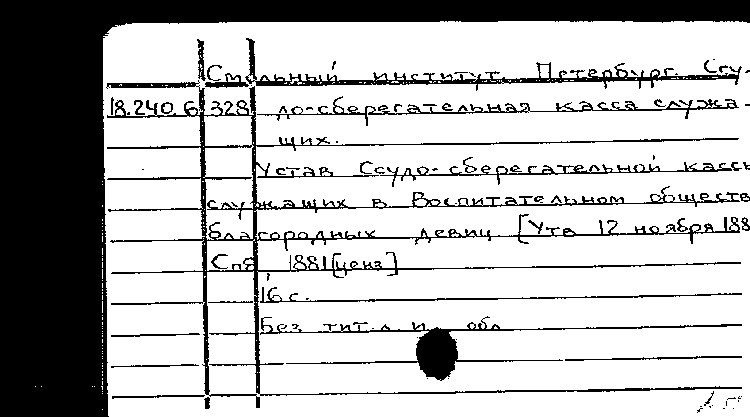 Смольный институт. Петербург. Ссу-
18.240.6.328 до-сберегательная касса служа-
щих.
Устав Ссудо-сберегательной кассы
служащих в Воспитательном обществ
благородных девиц [Утв 12 ноября 188
Спб, 1881[ценз]
16 с.
Без тит. л. и обл